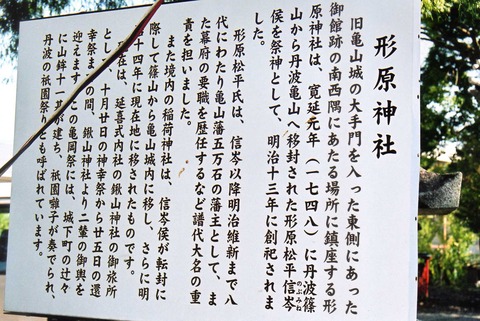 形原神社
旧亀山城の大手門を入った東側にあった
御館跡の南西隅にあたる場所に鎮座する形
原神社は、寛延元年（一七四八）に丹波篠
山から丹波亀山へ移封された形原松平信岑
のぶみね
侯を祭神として、明治十三年に創祀されま
した。
形原松平氏は、信岑以降明治維新まで八
代にわたり亀山藩五万石の藩主として、ま
た幕府の要職を歴任するなど譜代大名の重
責を担いました。
また境内の稲荷神社は、信岑侯が転封に
際して篠山から亀山城内に移し、さらに明
治十四年に現在地に移されたものです。
現在は、延喜式内社の鍬山神社の御旅所
として、十月廿日の神幸祭から廿五日の還
幸祭までの間、鍬山神社より二輩の御輿を
迎えます。この亀岡祭には、城下町の辻々
に山鉾十一基が建ち、祇園囃子が奏でられ、
丹波の祇園祭りとも呼ばれています。